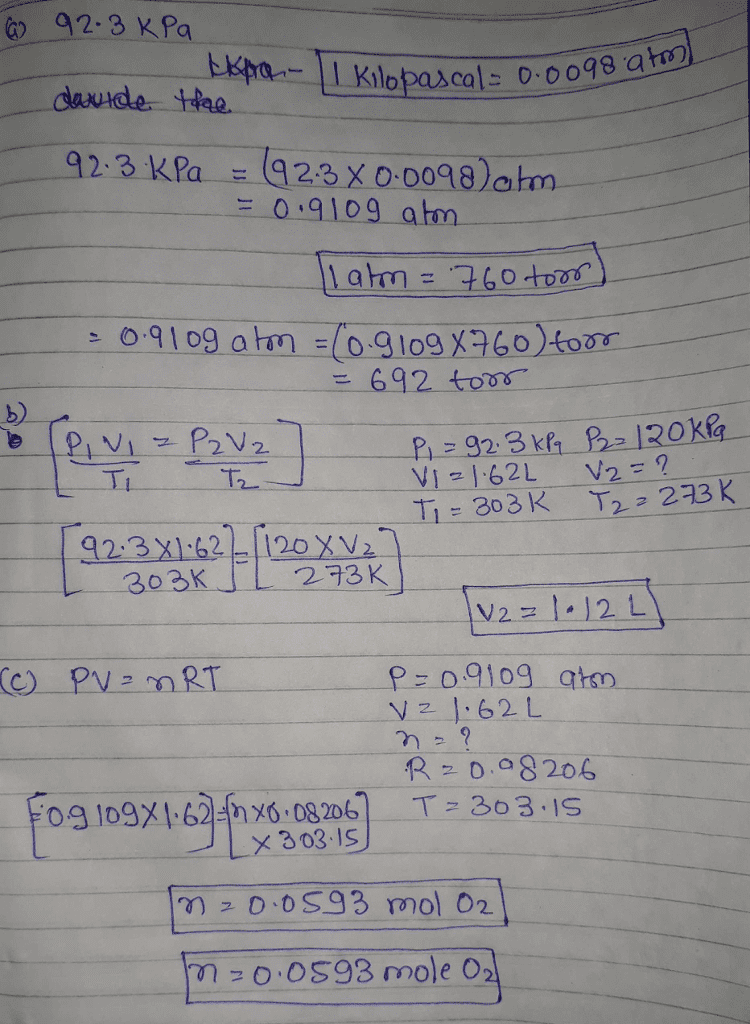 (a) 92.3 KPa
1 Kilopascal = 0.0098 atm
92.3 KPa = (92.3 X 0.0098) atm
= 0.9109 atm
1 atm = 760 torr
= 0.9109 atm = (0.9109 X 760) torr
= 692 torr
b)
[P1 V1 / T1 = P2 V2 / T2]
P1 = 92.3 kPa P2 = 120 KPa
V1 = 1.62L V2 = ?
T1 = 303 K T2 = 273 K
[92.3 X 1.62 / 303K] = [120 X V2 / 273K]
V2 = 1.12 L
(C) PV = nRT
P = 0.9109 atm
V = 1.62 L
n = ?
R = 0.08206
T = 303.15
[0.9109 X 1.62] = [n X 0.08206
X 303.15]
n = 0.0593 mol O2
n = 0.0593 mole O2